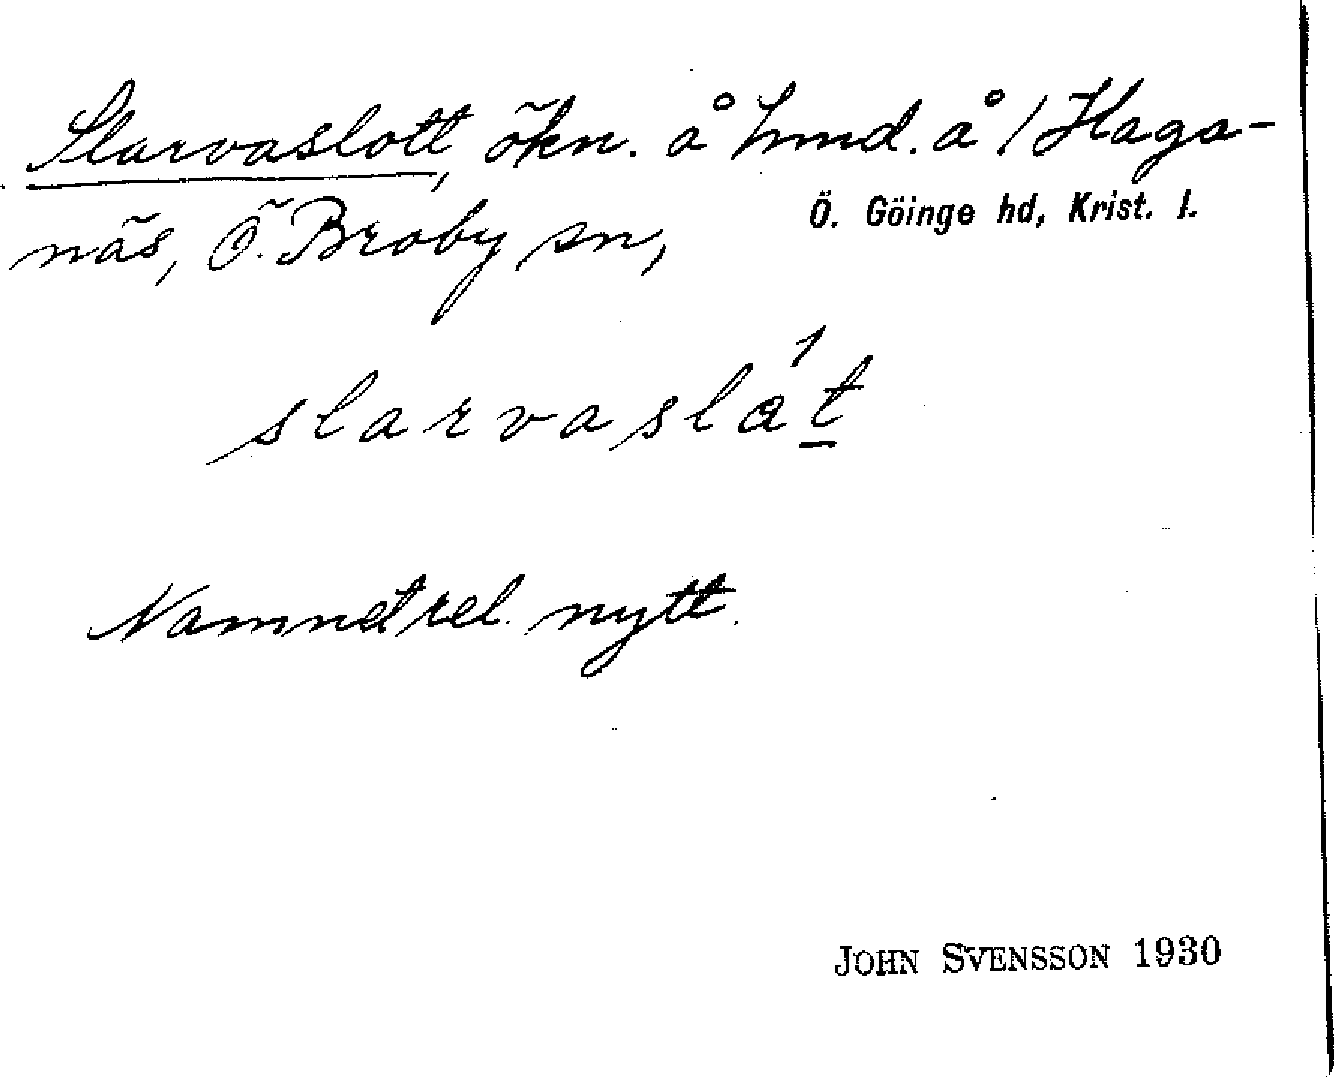 Slarvaslott, ökn. å hmd. å 1 Haga-
näs, Ö. Broby sn, Ö. Göinge hd, Krist. l.
slarvaslát
Namnet rel. nytt.
JOHN SVENSSON 1930